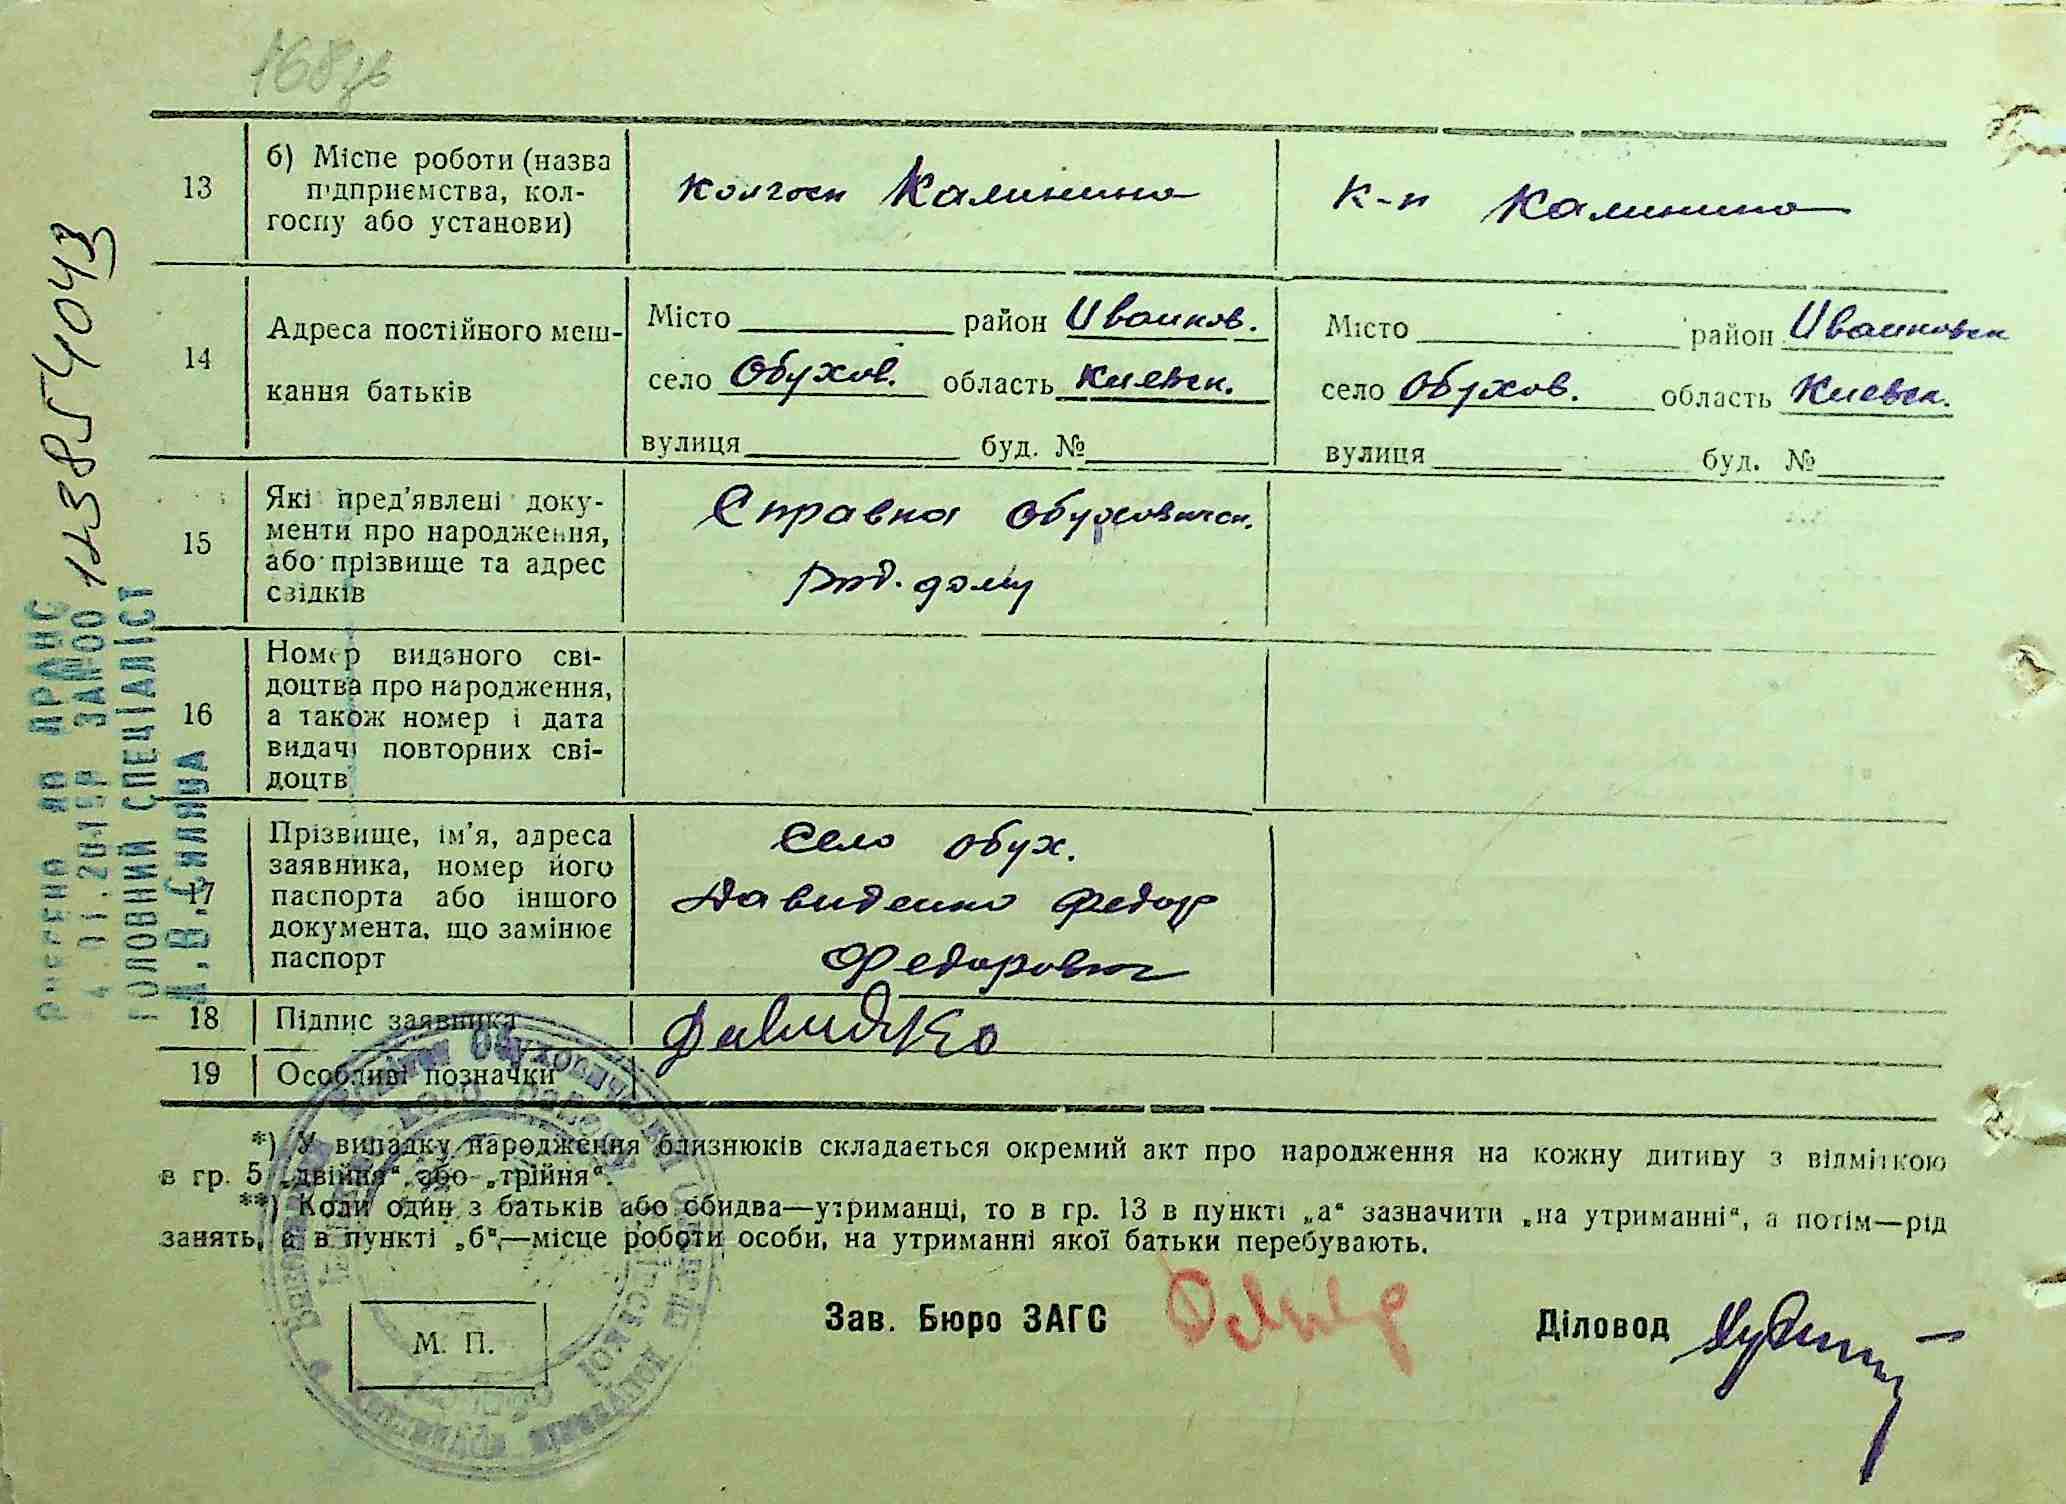 168зв
13
б) Місце роботи (назва
підприємства, кол-
госпу або установи)
колгосп Калинина
к-п Калинина
14
Адреса постійного меш-
кання батьків
Місто район Иванков.
село Обухов. область Киевск.
вулиця буд. №
Місто район Иванковск
село Обухов. область Киевск.
вулиця буд. №
15
Які пред'явлені доку-
менти про народження,
або прізвище та адрес
свідків
Справка Обуховичск.
род. дому
16
Номер виданого сві-
доцтва про народження,
а також номер і дата
видачі повторних сві-
доцтв
17
Прізвище, ім'я, адреса
заявника, номер його
паспорта або іншого
документа, що замінює
паспорт
Село Обух.
Давиденко Федор
Федорович
18
Підпис заявника
19
Особливі позначки
*) У випадку народження близнюків складається окремий акт про народження на кожну дитину з відміткою
в гр. 5 „двійня“ або „трійня“.
**) Коли один з батьків або обидва—утриманці, то в гр. 13 в пункті „а“ зазначити „на утриманні“, а потім—рід
занять, а в пункті „б“,—місце роботи особи, на утриманні якої батьки перебувають.
М. П.
Зав. Бюро ЗАГС
Діловод
внесено до ДРАЦС
за №00 123854043
ГОЛОВНИЙ СПЕЦІАЛІСТ